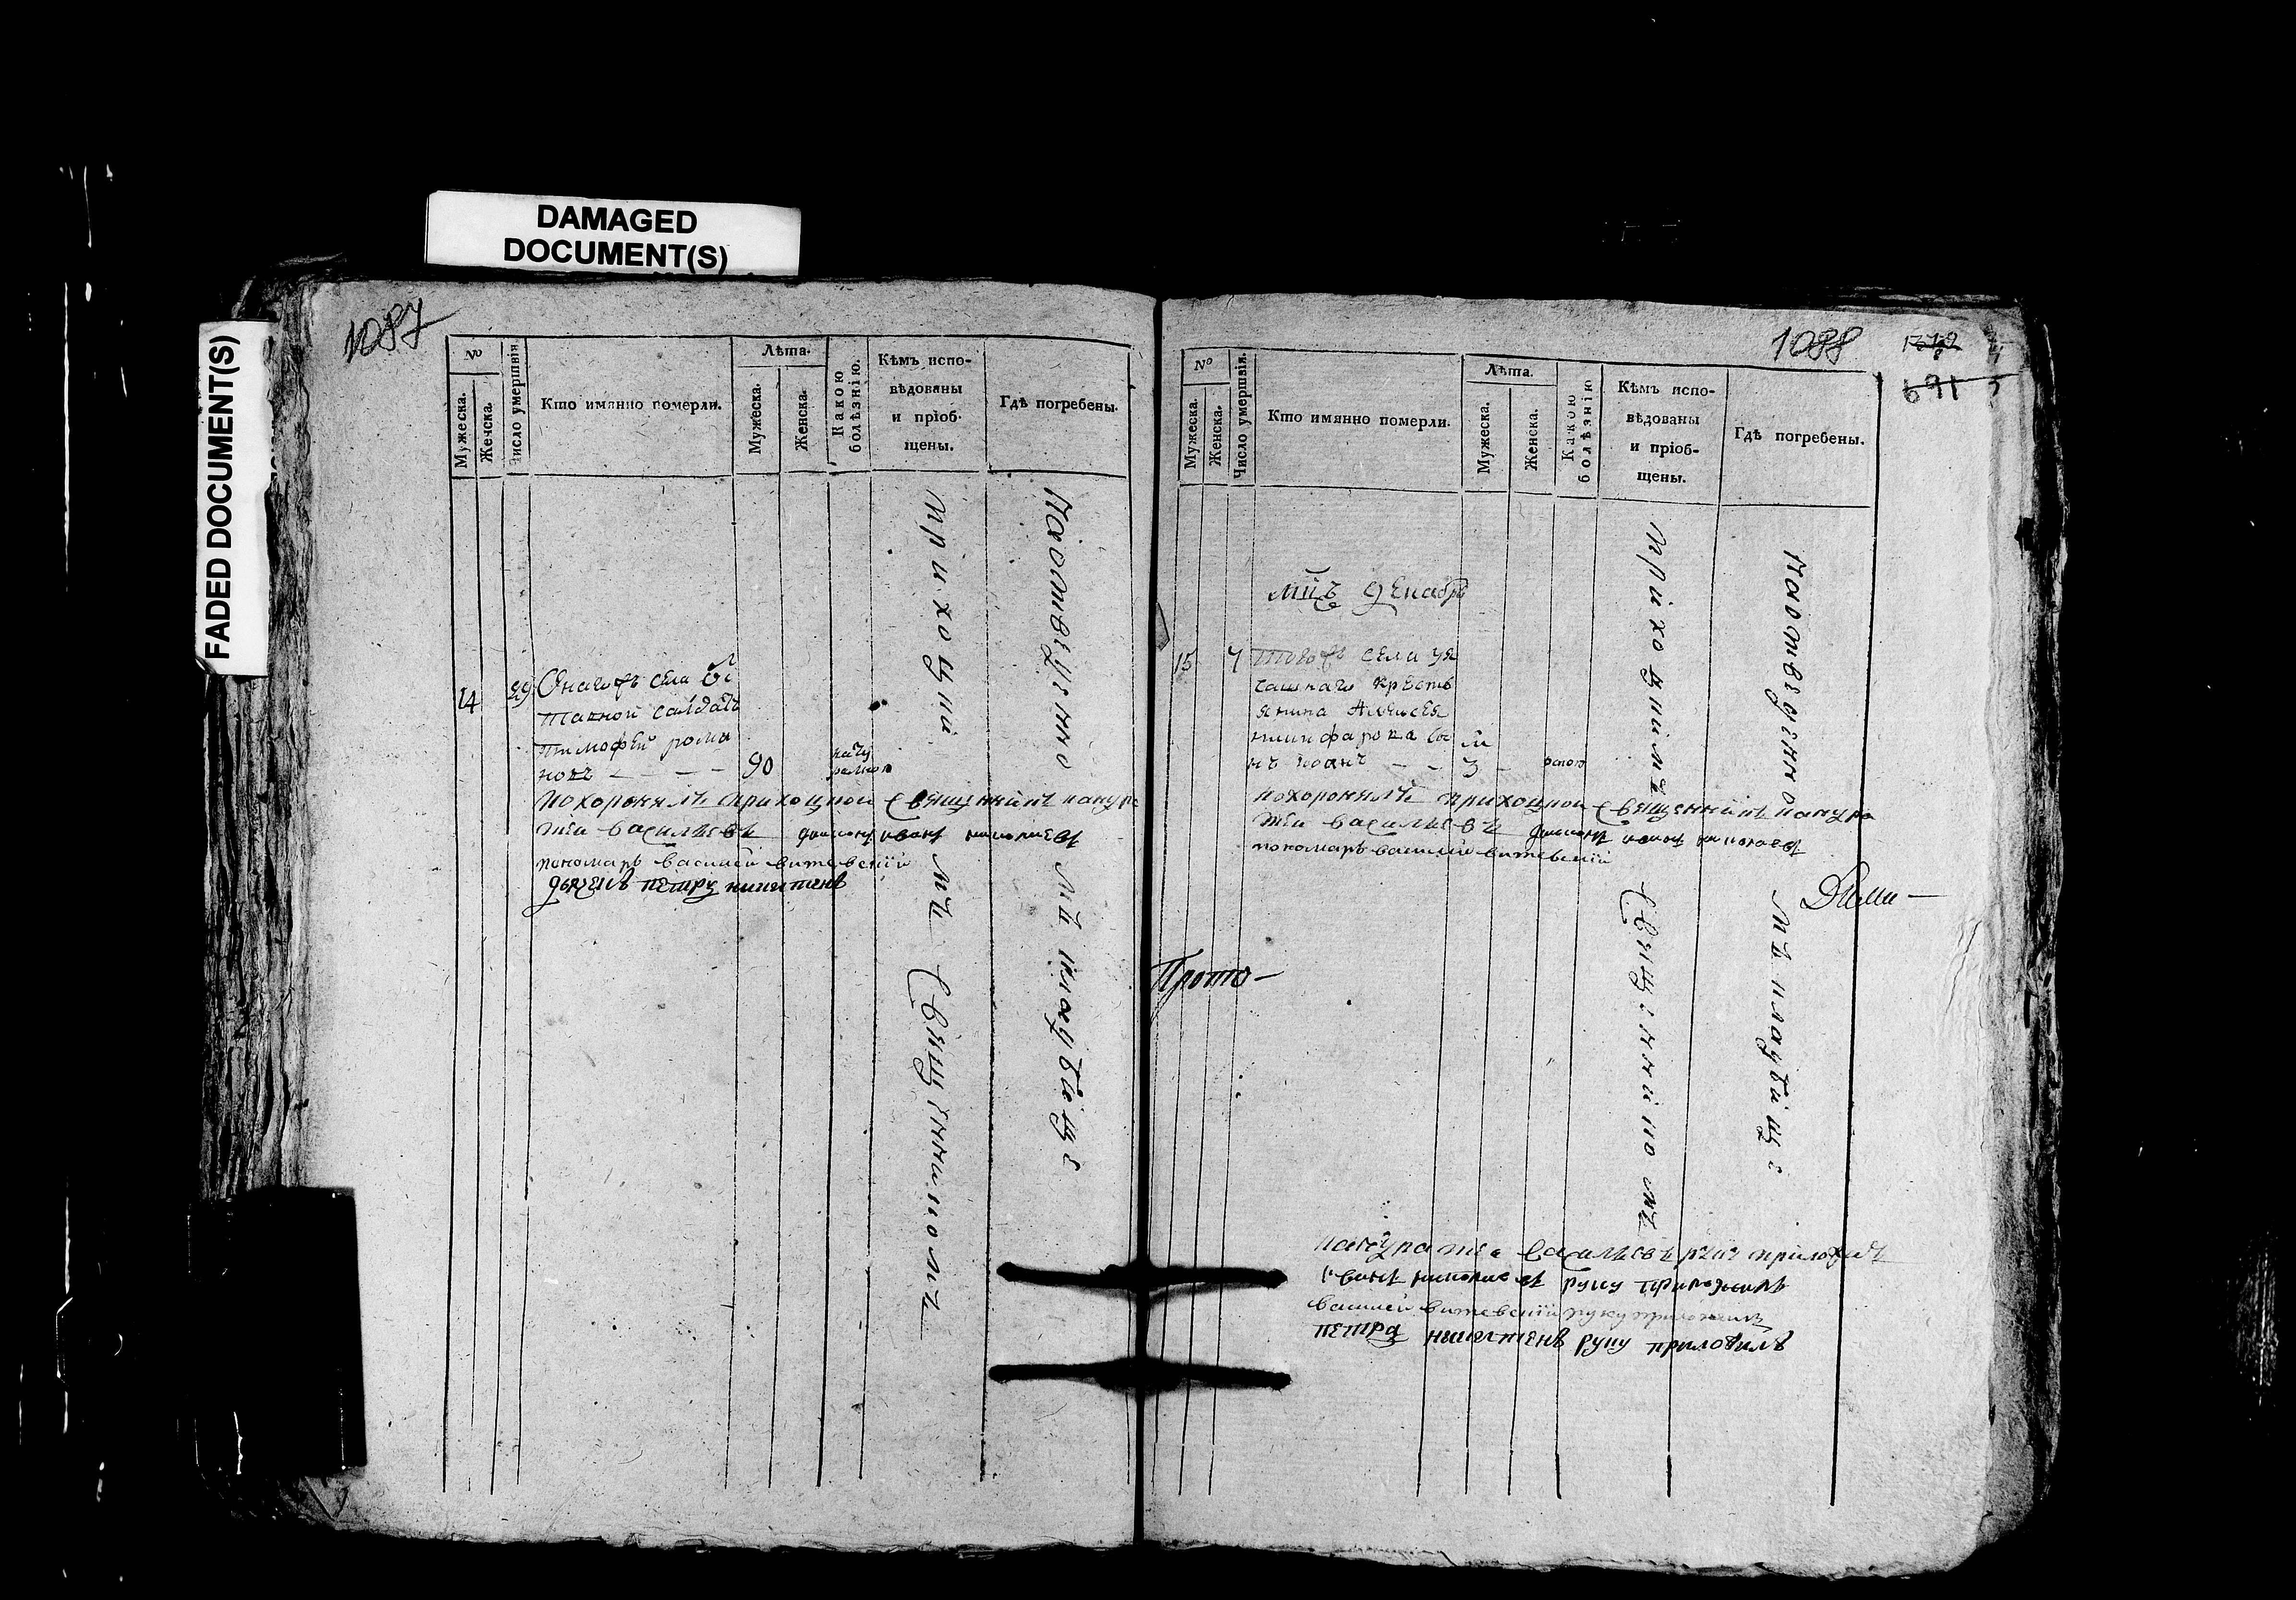 DAMAGED
DOCUMENT(S)
FADED DOCUMENT(S)
1087
№
Мужеска.
Женска.
Число умершвія.
Кто имянно померли.
Лѣта.
Мужеска.
Женска.
Какою
болѣзнію.
Кѣмъ испо-
вѣдованы
и пріоб-
щены.
Гдѣ погребены.
14
29
Онагожъ села от
тавной салдатъ
тимофей рома
новъ - - - -
90
нату
ралною
приходцкимъ священникомъ
на отведенномъ кладбище
похоронялъ приходцкой священникъ
васильевъ дьяконъ иванъ
пономарь василей витевский
дьячекъ петръ никитинъ
1088
1372
691
№
Мужеска.
Женска.
Число умершвія.
Кто имянно померли.
Лѣта.
Мужеска.
Женска.
Какою
болѣзнію
Кѣмъ испо-
вѣдованы
и пріоб-
щены.
Гдѣ погребены.
мцъ декабрь
15
7
тогожъ села
крестъ
янина Алексея
сы
нъ иоанъ - -
3
оспою
приходцкимъ священникомъ
на отведенномъ кладбище
похоронялъ приходцкой священникъ
васильевъ дьяконъ иванъ
пономарь василей витевский
Прото-
васильевъ руку приложилъ
иванъ руку приложилъ
василей витевский руку приложилъ
петръ никитинъ руку приложилъ